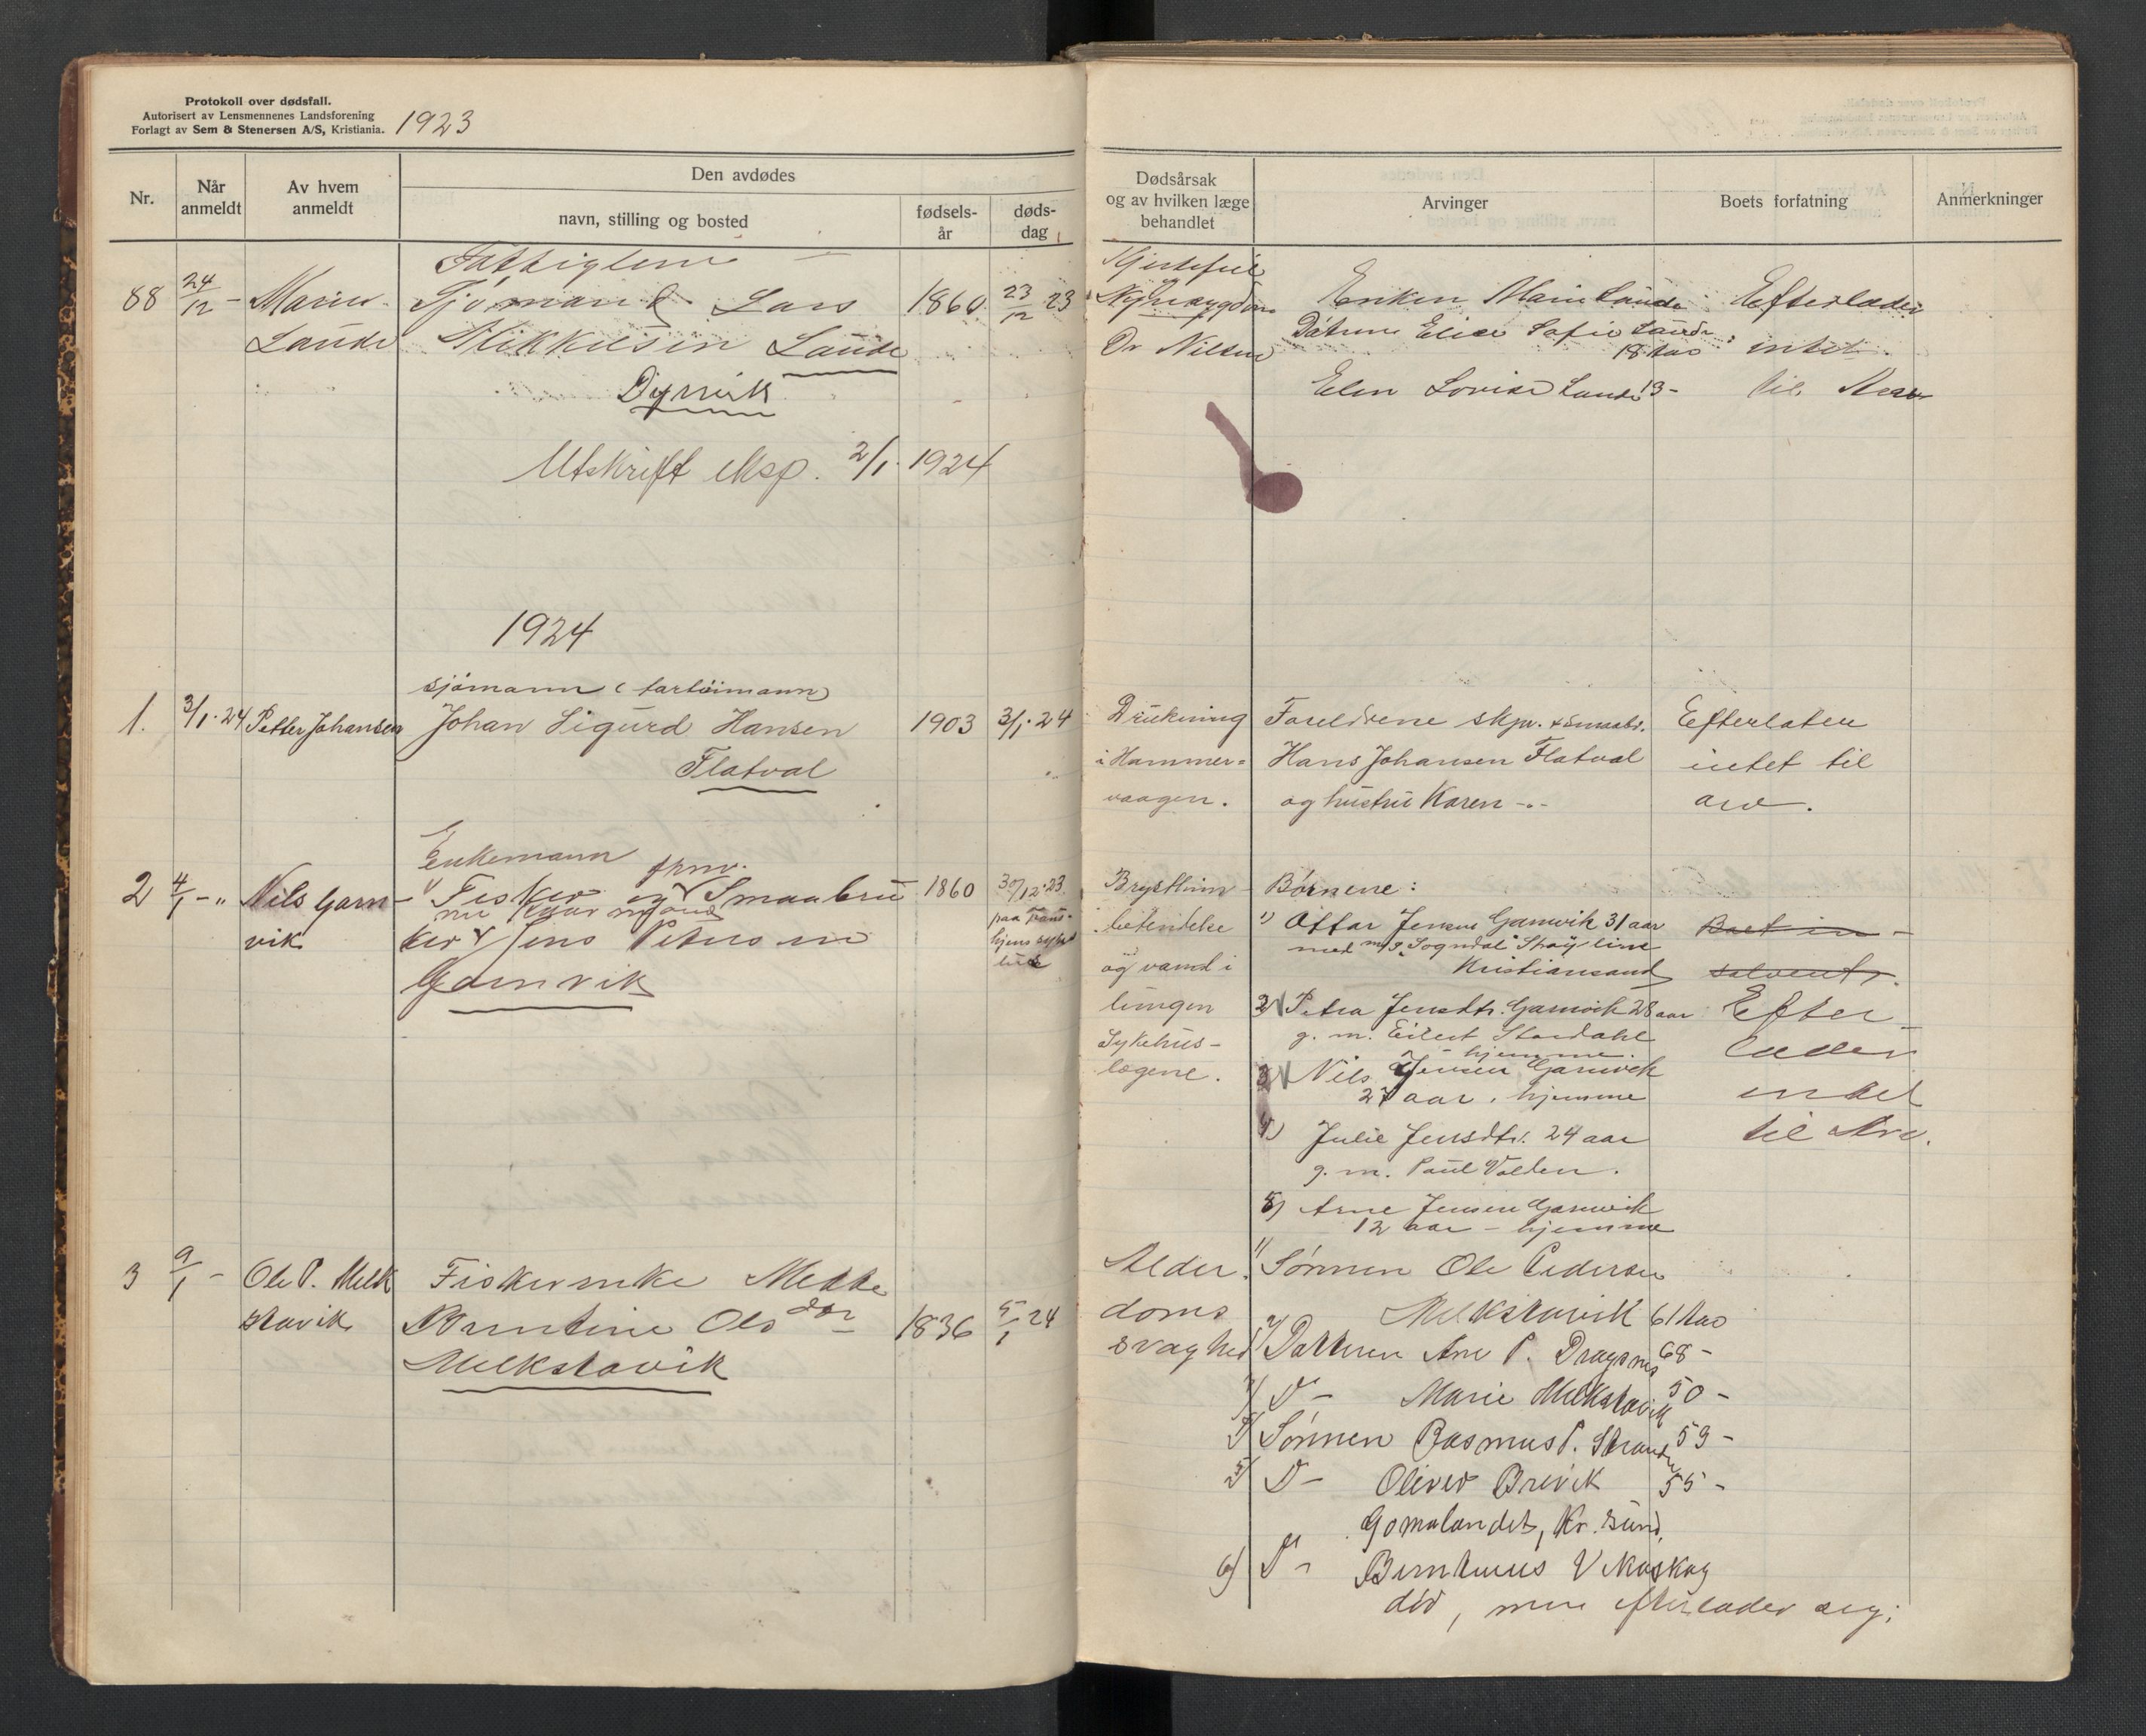 Protokoll over dødsfall.
Autorisert av Lensmennenes Landsforening
Forlagt av Sem & Stenersen A/S, Kristiania.
1923
Nr.
Når anmeldt
Av hvem anmeldt
Den avdødes
navn, stilling og bosted
fødsels-år
døds-dag
Dødsårsak
og av hvilken læge
behandlet
Arvinger
Boets forfatning
Anmerkninger
Fattiglem
88 24/12 - Marius Sjømand Lars 1860 23/12 23
Laude Mikkelsen Laude
Dyrvik
Utskrift eksp. 2/1. 1924
Hjertefeil
Nyresygdom
Dr Nilsen
Enken Marie Laude
Datteren Elise Sofie Laude
18 Aar
Elen Lovise Laude 13 -
Efterlader
intet
til Arv
1924
sjømann (fartøimann)
1. 3/1. 24 Petter Johansen Johan Sigurd Hansen 1903 3/1. 24
Flatval
Drukning
i Hammer=
vaagen.
Foreldrene skpr. & smaabr.
Hans Johansen Flatval
og hustru Karen -"-
Efterlater
intet til
arv.
Enkemann
fhnv.
2 4/1 - " Nils Garn- Fisker og Smaabru 1860 30/12. 23
vik ker Jens Petersen
Garnvik
paa
hjems syke
hus
Brysthin-
betendelse
og vand i
lungen
Sykehus-
lægene.
Børnene:
1) Ottar Jensen Garnvik 31 aar
med m/s "Sogndal"
Kristiansand
2) Petra Jensdtr. Garnvik 28 aar
g. m. Eilert Stordahl
- hjemme.
3) Nils Jensen Garnvik
27 aar, hjemme
4) Julie Jensdtr. 24 aar
g. m. Paul Valden.
5) Arne Jensen Garnvik
12 aar - hjemme
Boet in-
solvent.
Efter-
lader
intet
til Arv.
3 9/1 - Ole P. Melk Fiskerenke Mette
stavik Berntine Olsdtr 1836 5/1 24
Melkstavik
Alder
doms
svaghed
1) Sønnen Ole Pedersen
Melkstavik 61 Aar
2) Datteren Ane P. Dragsnes 68 -
3) D - Marie Melkstavik 50 -
4) Sønnen Rasmus P. Strand 59 -
5) D - Oliver Brevik 55 -
Gomalandet, Kr.sund.
6) D - Berntinus Vikaskag
død, men efterlader seg: